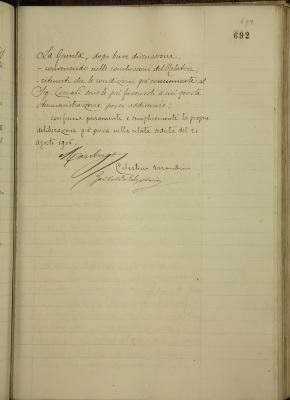 692
692
La Giunta, dopo breve discussione
- convenendo nelle conclusioni del Relatore
- ritenuto che le condizioni già comunicate al
Sig. sono le più favorevoli a cui questa
Amministrazione possa addivenire;
conferma puramente e semplicemente la propria
deliberazione già presa nella citata seduta del 21
agosto 1906.
Celestino